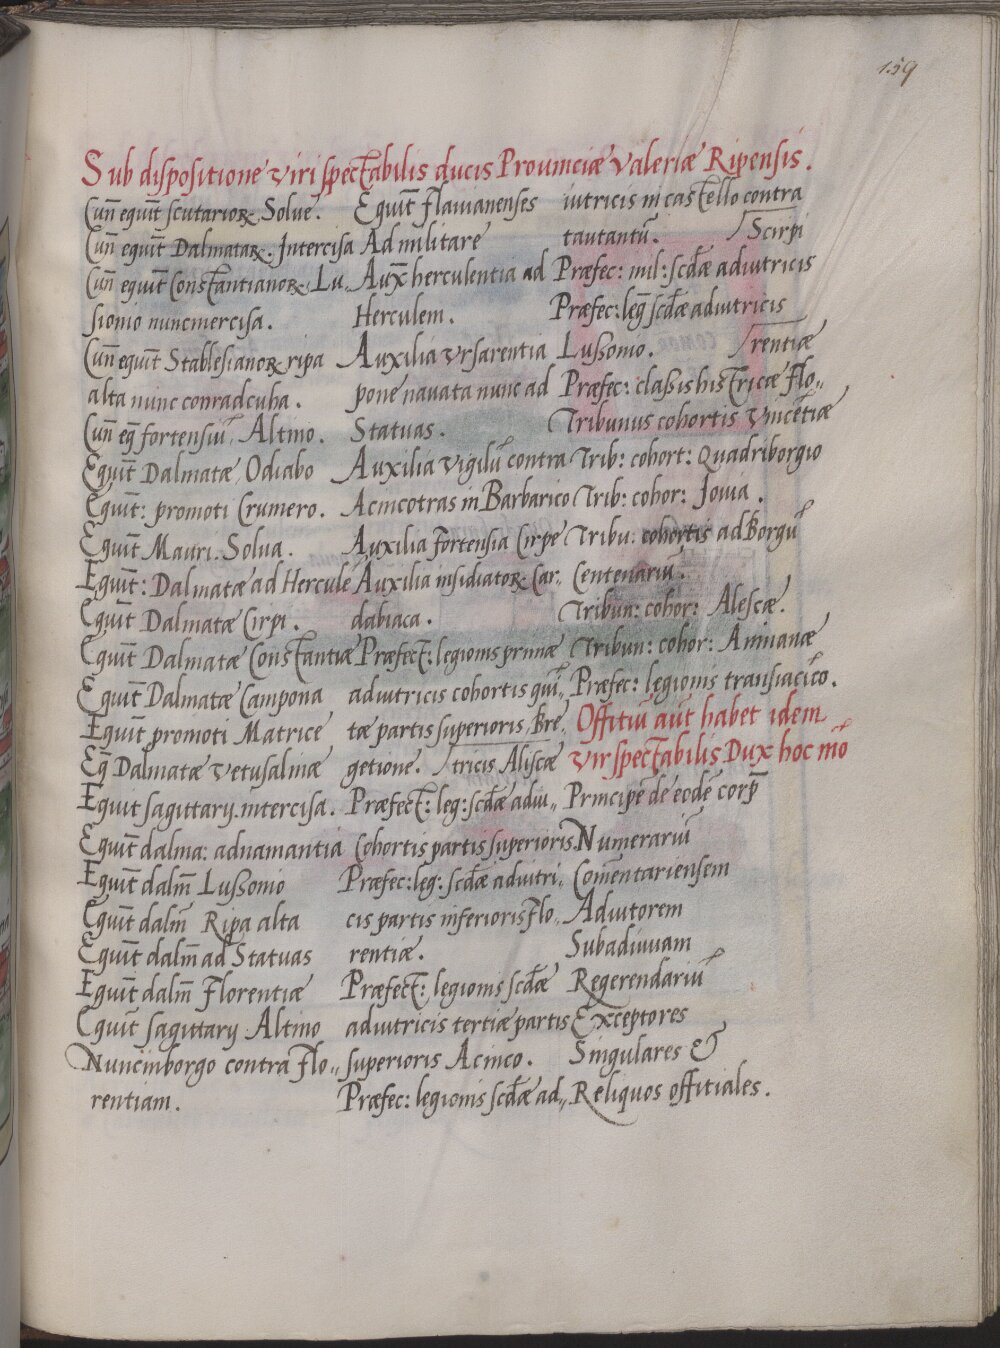 159
Sub dispositione viri spectabilis ducis Prouinciæ Valeriæ Ripensis.
Cun̄ equit̄ scutarioꝝ Solue.
Cun̄ equit̄ Dalmataꝝ. Intercisa
Cun̄ equit̄ Constantianoꝝ Lu„
sionio nunc mercisa.
Cun̄ equit̄ Stablesianoꝝ ripa
alta nunc conradcuha.
Cun̄ eq̄ fortensiū Altino.
Equit̄ Dalmatæ Odiabo
Equit̄: promoti Crumero.
Equit̄ Mauri. Solua.
Equit̄: Dalmatæ ad Herculē
Equit̄ Dalmatæ Cirpi.
Equit̄ Dalmatæ Constantiæ
Equit̄ Dalmatæ Campona
Equit̄ promoti Matrice
Eq̄ Dalmatæ vetusalinæ
Equit sagittarÿ. intercisa.
Equit̄ dalma: adnamantia
Equit̄ dalm̄ Lussonio
Equit̄ dalm̄ Ripa alta
Equit̄ dalm̄ ad Statuas
Equit̄ dalm̄ Florentiæ
Equit̄ sagittarÿ Altino
Nuncinborgo contra Flo„
rentiam.
Equit̄ Flauianenses
Ad militare
Aux̄ herculentia ad
Herculem.
Auxilia vrsarentia
pone nauata nunc ad
Statuas.
Auxilia vigilū contra
Acincotras in Barbarico
Auxilia Fortensia Cirpe
Auxilia insidiatoꝝ Car„
dabiaca.
Præfect̄: legionis primæ
adiutricis cohortis quī„
tæ partis superioris, Bre„
getione. / tricis Aliscæ
Præfect̄: leg: scd̄æ adiu„
Cohortis partis superioris.
Præfec: leg: scd̄æ adiutri„
cis partis inferioris Flo„
rentiæ.
Præfect̄: legionis scd̄æ
adiutricis tertiæ partis
superioris Acinco.
Præfec: legionis scd̄æ ad„
iutricis in castello contra
tautantū. / Scirpi
Præfec: mil: scd̄æ adiutricis
Præfec: leḡ scd̄æ adiutricis
Lussonio. / rentiæ
Præfec: classis histricæ Flo„
Tribunus cohortis vincētiæ
Trib: cohort: Quadriborgio
Trib: cohor: Iouia.
Tribu: cohortis ad Borgū
Centenariū.
Tribun: cohor: Alescæ.
Tribun: cohor: Aminanæ
Præfec: legionis transiacīco.
Offitiū aut̄ habet idem
vir spectabilis Dux hoc mō
Principē de eodē corp̄
Numerariū
Com̄entariensem
Adiutorem
Subadiuuam
Regerendariū
Exceptores
Singulares &
Reliquos offitiales.